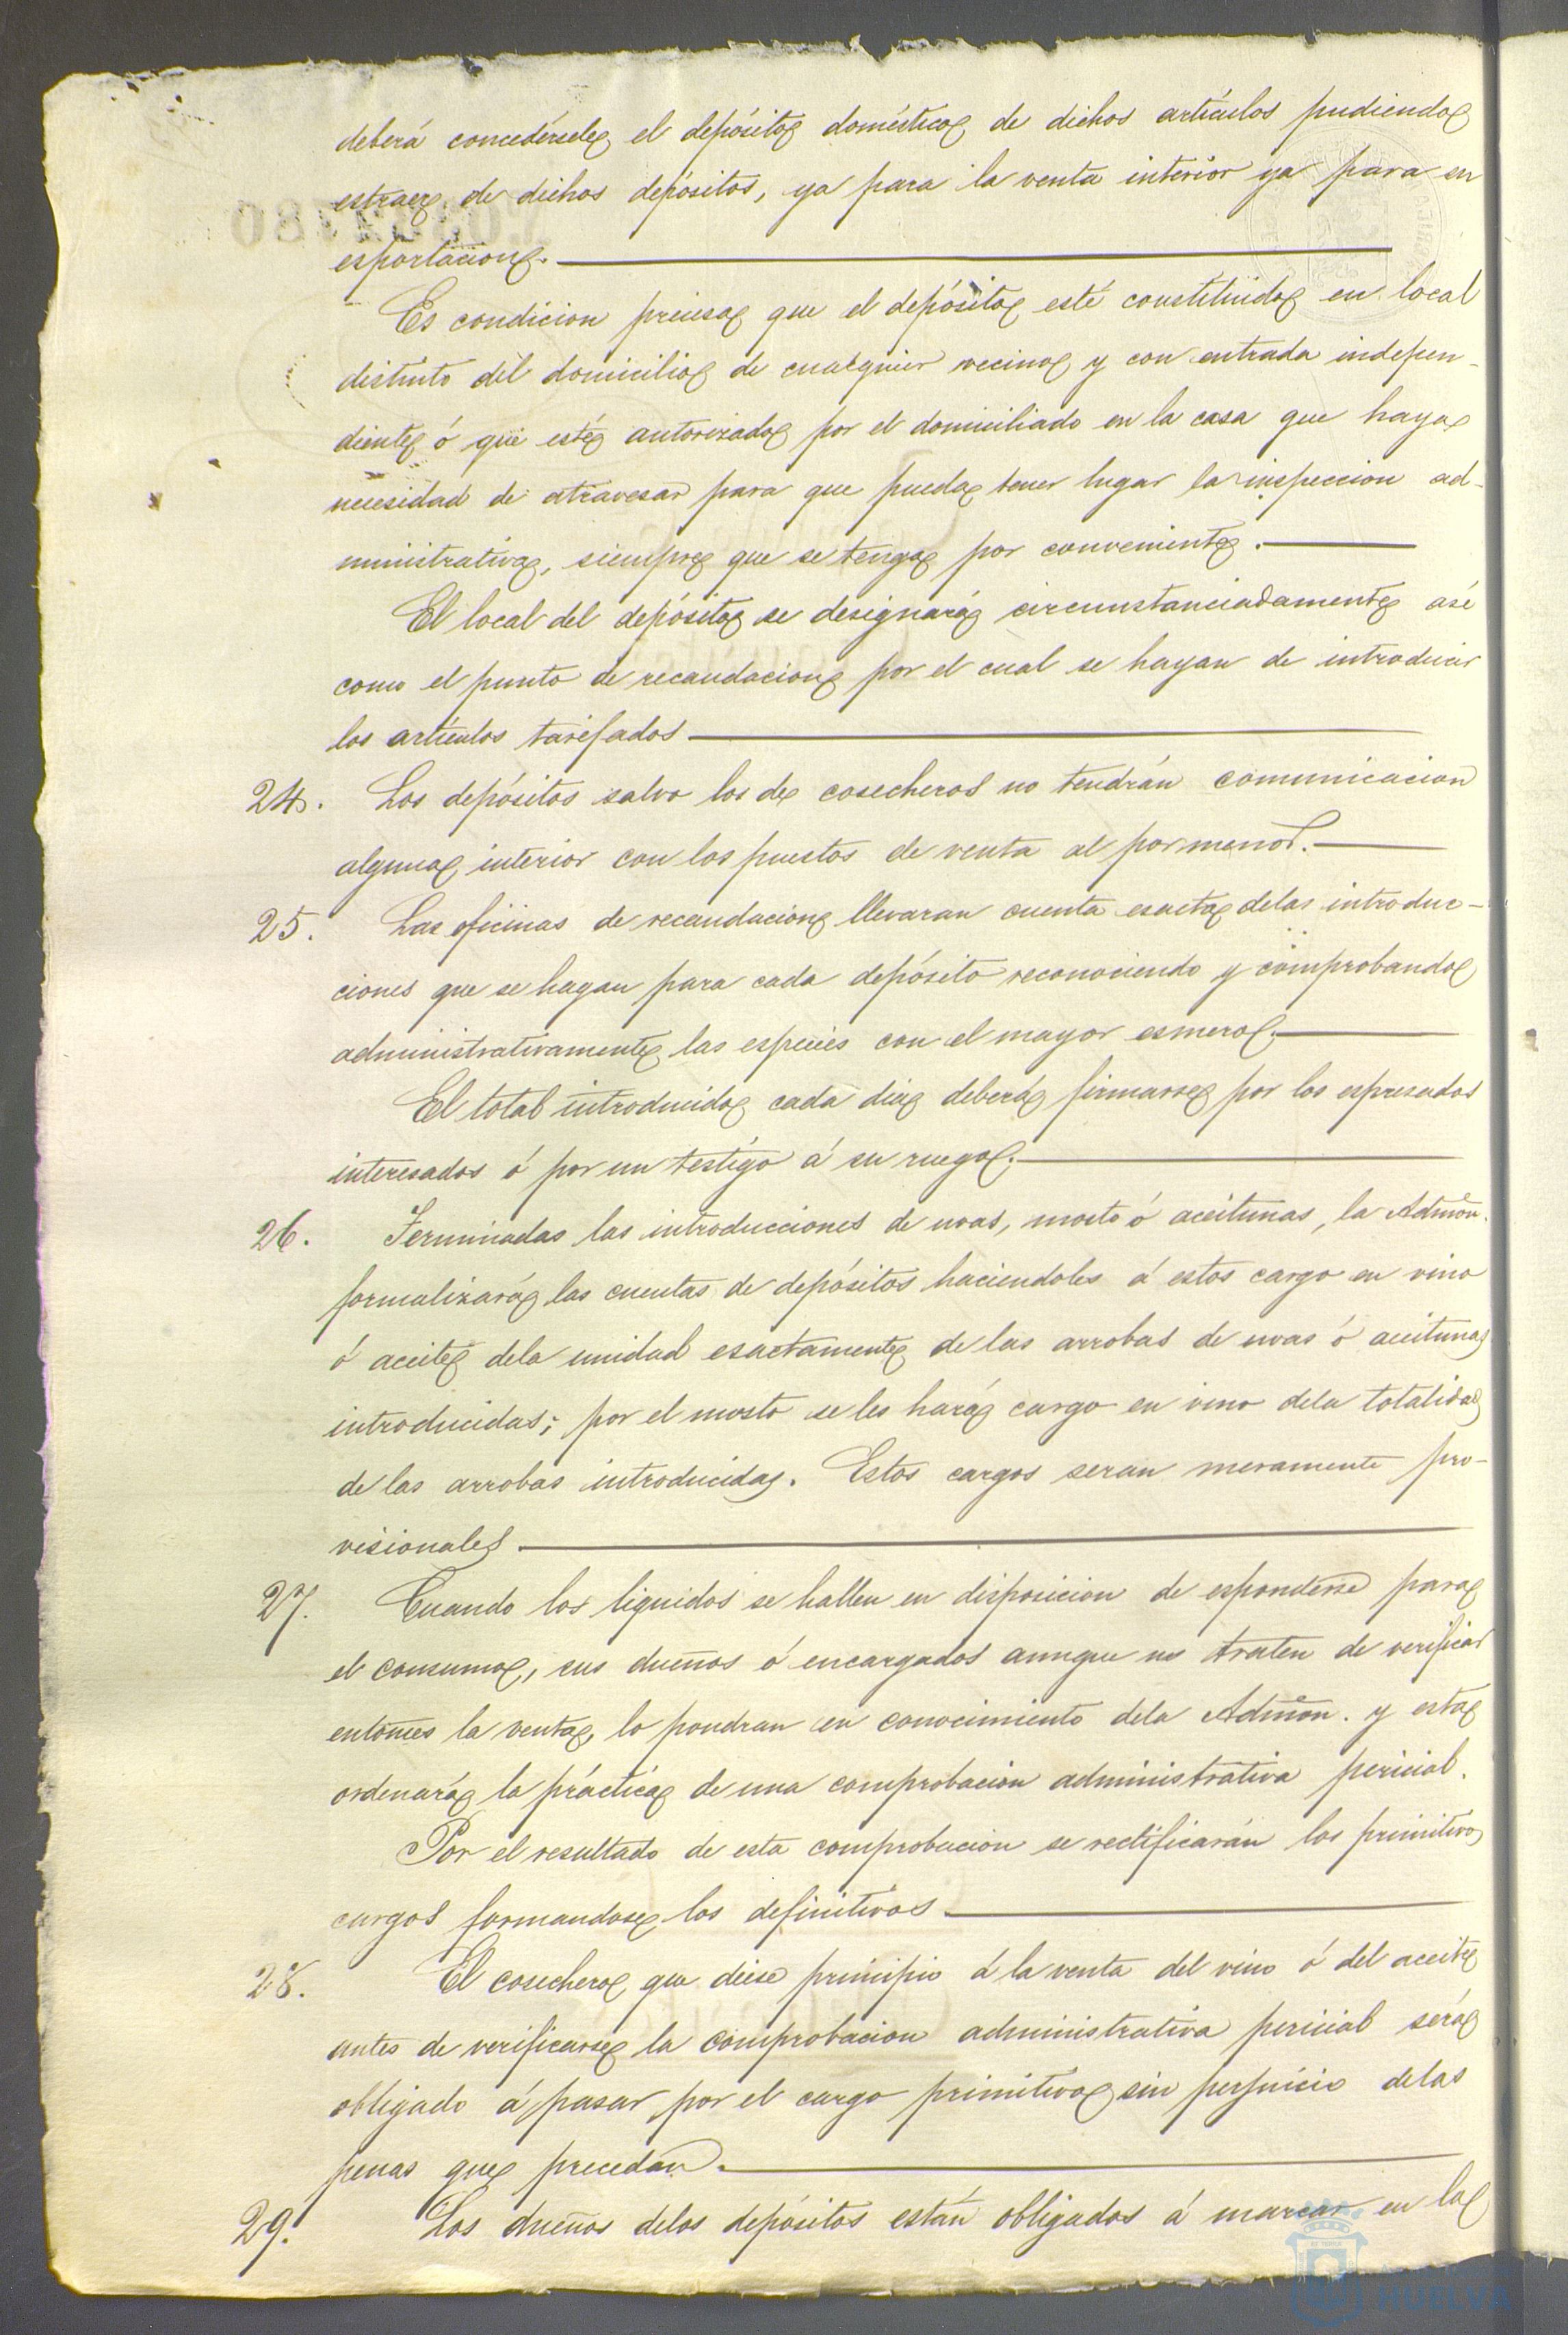 deberá concedérsele el depósito doméstico de dichos artículos pudiendo
estraer de dichos depósitos, ya para la venta interior ya para su
esportacion.
Es condicion precisa que el depósito esté constituido en local
distinto del domicilio de cualquier vecino y con entrada indepen-
diente ó que esté autorizado por el domiciliado en la casa que haya
necesidad de atravesar para que pueda tener lugar la inspeccion ad-
ministrativa, siempre que se tenga por conveniente.
El local del depósito se designará circunstanciadamente asi
como el punto de recaudacion por el cual se hayan de introducir
los artículos tarifados
24. Los depósitos salvo los de cosecheros no tendrán comunicacion
alguna interior con los puestos de venta al por menor.
25. Las oficinas de recaudacion llevaran cuenta esacta delas introduc-
ciones que se hagan para cada depósito reconociendo y comprobando
administrativamente las especies con el mayor esmero.
El total introducido cada dia deberá firmarse por los espresados
interesados ó por un testigo á su ruego.
26. Terminadas las introducciones de uvas, mosto ó aceitunas, la Admon.
formalizará las cuentas de depósitos haciendoles á estos cargo en vino
ó aceite dela unidad esactamente de las arrobas de uvas ó aceitunas
introducidas; por el mosto se les hará cargo en vino dela totalidad
de las arrobas introducidas. Estos cargos seran meramente pro-
visionales.
27. Cuando los liquidos se hallen en disposicion de esponderse para
el consumo, sus dueños ó encargados aunque no traten de verificar
entonces la venta, lo pondran en conocimiento dela Admon. y esta
ordenará la práctica de una comprobacion administrativa pericial.
Por el resultado de esta comprobacion se rectificarán los primitivos
cargos formandose los definitivos.
28. El cosechero que diese principio á la venta del vino ó del aceite
antes de verificarse la comprobacion administrativa pericial será
obligado á pasar por el cargo primitivo sin perjuicio delas
penas que precedan.
29. Los dueños delos depósitos están obligados á marcar en la
HUELVA